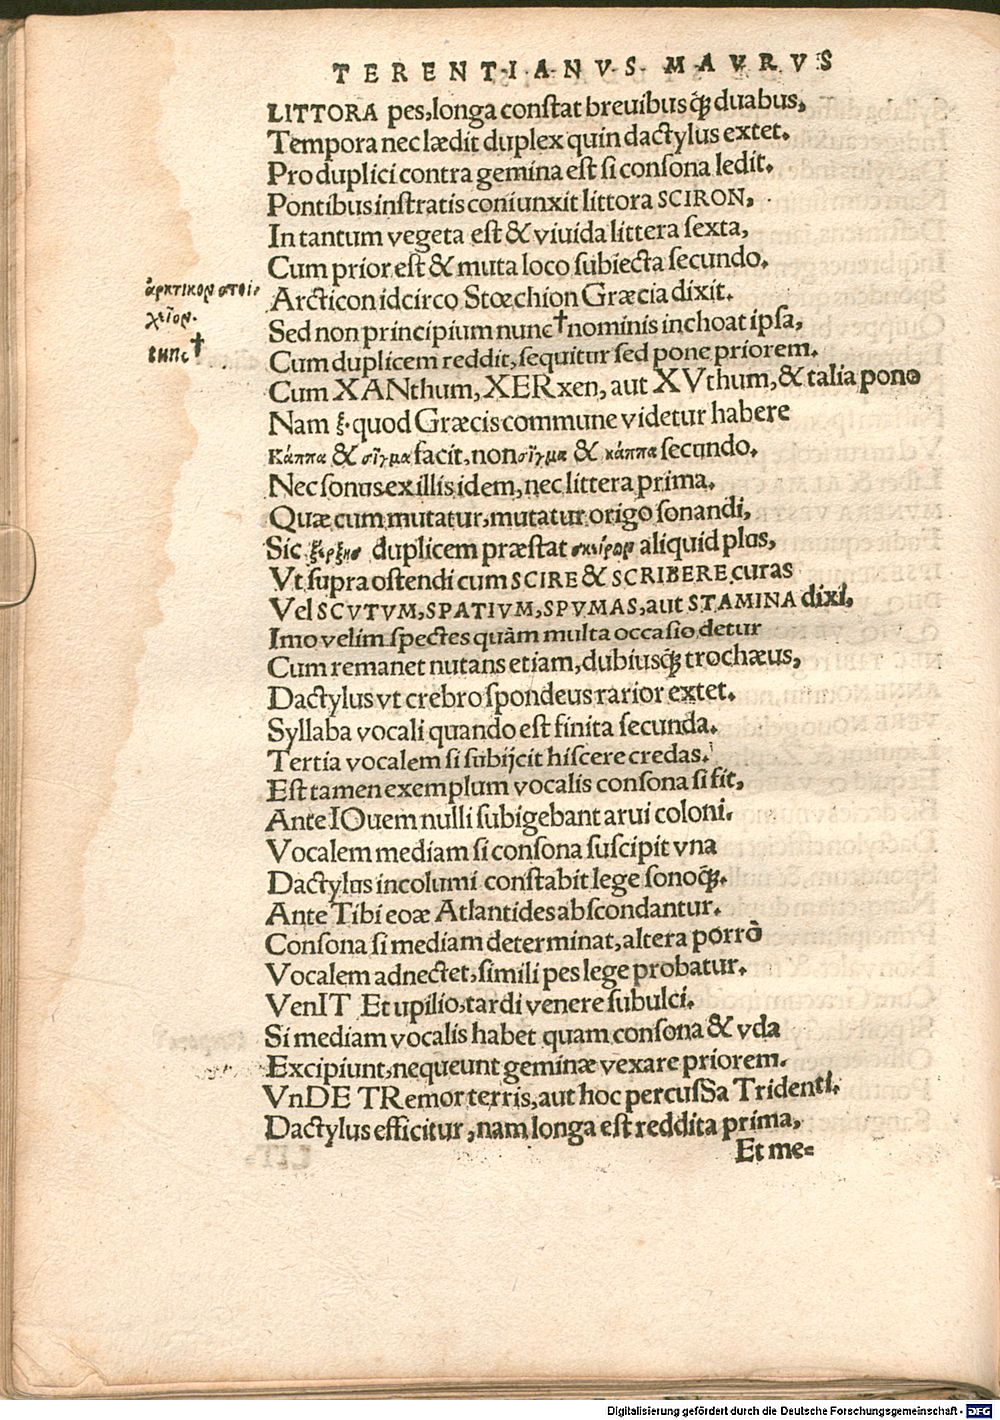 TERENTIANVS MAVRVS
LITTORA pes, longa conſtat breuibusq́; duabus,
Tempora nec lædit duplex quin dactylus extet.
Pro duplici contra gemina eſt ſi conſona ledit.
Pontibus inſtratis coniunxit littora SCIRON,
In tantum vegeta eſt & viuida littera ſexta,
Cum prior eſt & muta loco ſubiecta ſecundo.
ἀρκτικορ στοιχεῖορ.
Arcticon idcirco Stœchion Græcia dixit.
tunc†
Sed non principium nunc† nominis inchoat ipſa,
Cum duplicem reddit, ſequitur ſed pone priorem.
Cum XANthum, XERxen, aut XVthum, & talia pono
Nam ξ. quod Græcis commune videtur habere
Κάππα & σῖγμα facit, non σῖγμα & κάππα ſecundo.
Nec ſonus ex illis idem, nec littera prima.
Quæ cum mutatur, mutatur origo ſonandi,
Sic ξέρξησ duplicem præſtat σκείρωρ aliquid plus,
Vt ſupra oſtendi cum SCIRE & SCRIBERE curas
Vel SCVTVM, SPATIVM, SPVMAS, aut STAMINA dixi,
Imo velim ſpectes quàm multa occaſio detur
Cum remanet nutans etiam, dubiusq́; trochæus,
Dactylus vt crebro ſpondeus rarior extet.
Syllaba vocali quando eſt finita ſecunda.
Tertia vocalem ſi ſubijcit hiſcere credas.
Eſt tamen exemplum vocalis conſona ſi ſit,
Ante IOuem nulli ſubigebant arui coloni.
Vocalem mediam ſi conſona ſuſcipit vna
Dactylus incolumi conſtabit lege ſonoq́;.
Ante Tibi eoæ Atlantides abſcondantur.
Conſona ſi mediam determinat, altera porrò
Vocalem adnectet, ſimili pes lege probatur.
VenIT Et upilio, tardi venere ſubulci.
Si mediam vocalis habet quam conſona & vda
Excipiunt, nequeunt geminæ vexare priorem.
VnDE TRemor terris, aut hoc percuſSa Tridenti.
Dactylus efficitur, nam longa eſt reddita prima,
Et me=
Digitalisierung gefördert durch die Deutsche Forschungsgemeinschaft - DFG